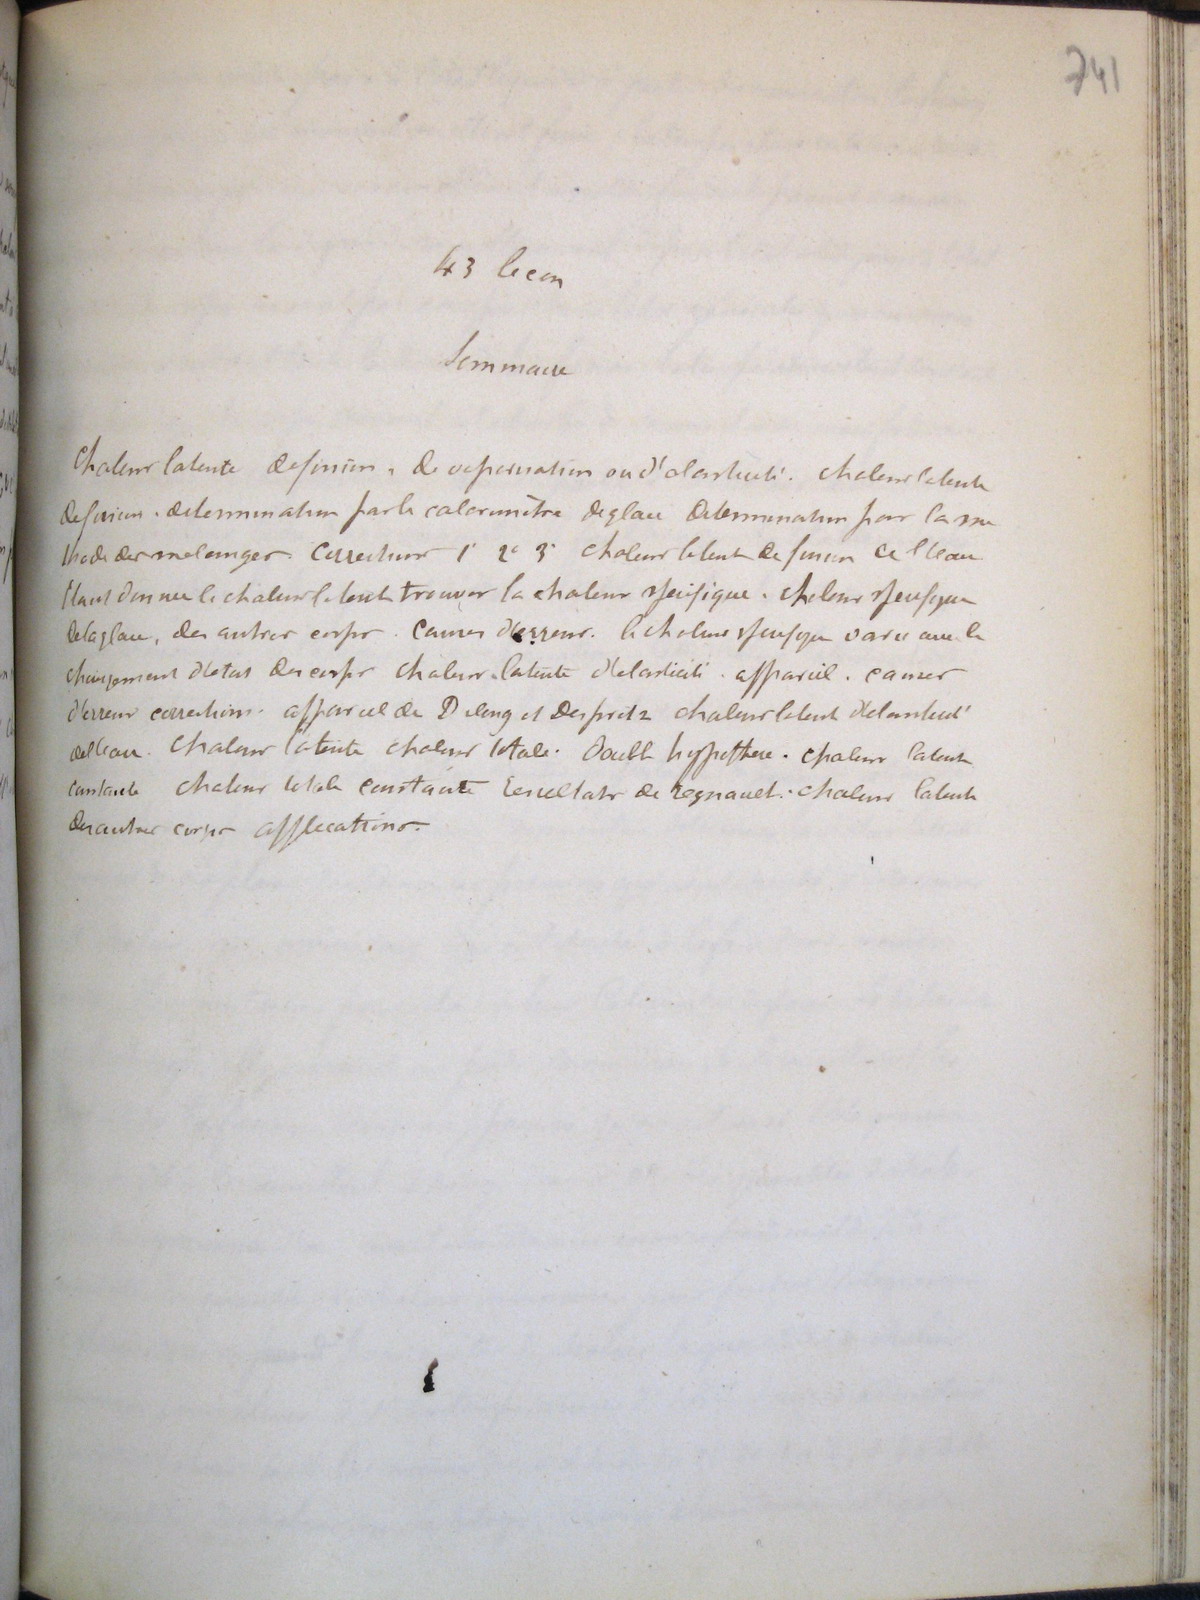 741
43 lecon
Sommaire
Chaleur latente de fusion. de vaporisation ou d'elasticité. chaleur latente
de fusion. determination par le calorimètre de glace determination par la me
thode des melanges. Corrections 1° 2° 3° chaleur latente de fusion de l'eau
etant donnee la chaleur latente trouver la chaleur specifique. Chaleur specifique
de la glace, des autres corps. Causes d'erreur. la chaleur specifique varie avec le
changement d'etat des corps chaleur latente d'elasticité. appareil. causes
d'erreur corrections. appareil de Dulong et Despretz chaleur latente d'elasticité
de l'eau. Chaleur latente chaleur totale. Double hypothese. chaleur latente
constante chaleur totale constante resultats de regnault. chaleur latente
des autres corps applications.